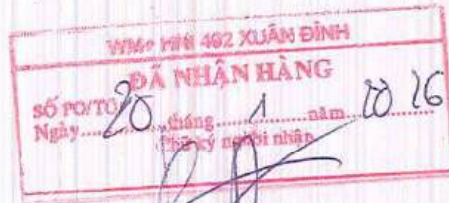 WM+ HNI 402 XUÂN ĐỈNH
ĐÃ NHẬN HÀNG
SỐ PO/TO
Ngày 20 tháng 1 năm 2026
Chữ ký người nhận